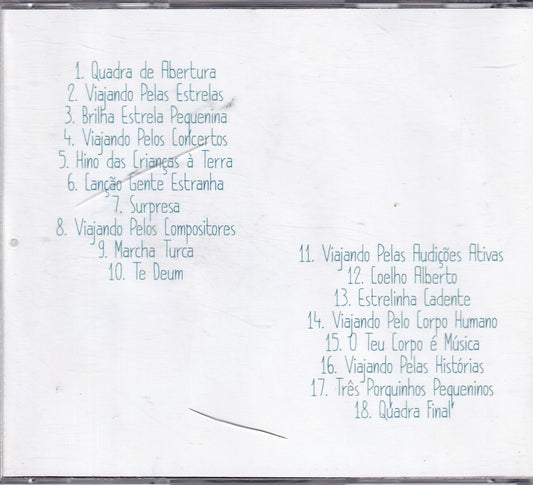 1. Quadra de Abertura
2. Viajando Pelas Estrelas
3. Brilha Estrela Pequenina
4. Viajando Pelos Concertos
5. Hino das Crianças à Terra
6. Canção Gente Estranha
7. Surpresa
8. Viajando Pelos Compositores
9. Marcha Turca
10. Te Deum
11. Viajando Pelas Audições Ativas
12. Coelho Alberto
13. Estrelinha Cadente
14. Viajando Pelo Corpo Humano
15. O Teu Corpo é Música
16. Viajando Pelas Histórias
17. Três Porquinhos Pequeninos
18. Quadra Final